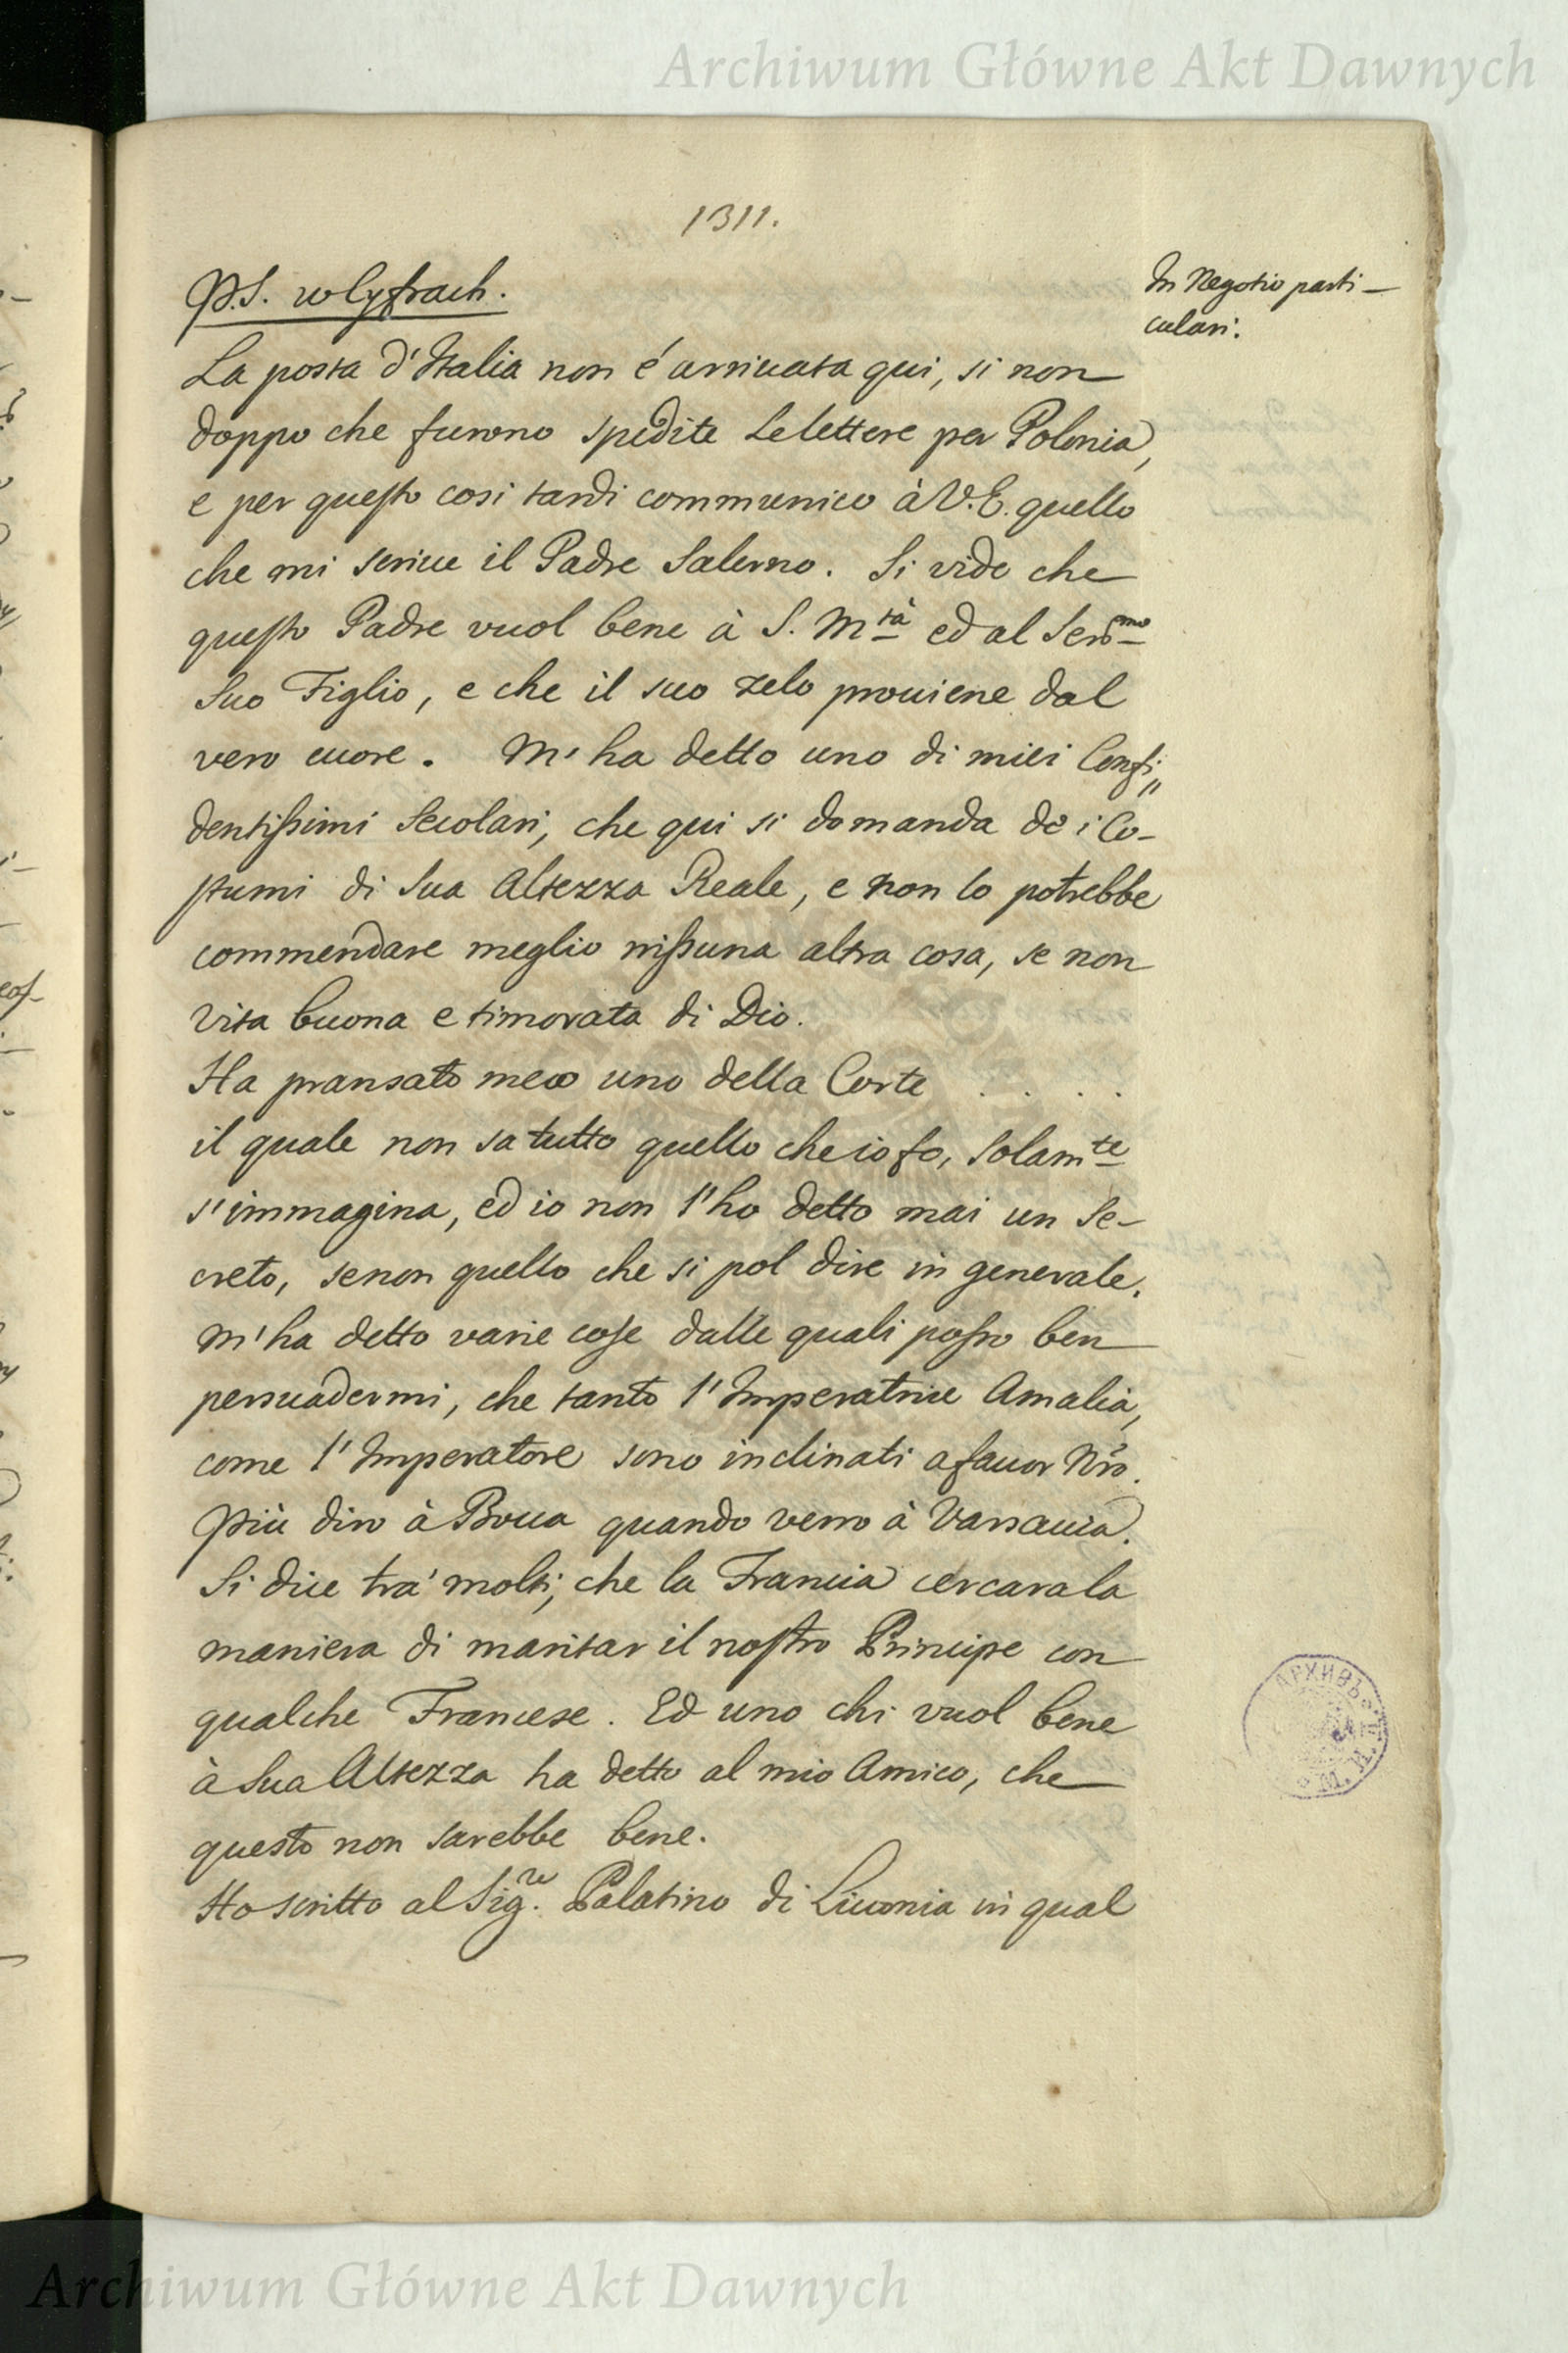 Archiwum Główne Akt Dawnych
1311.
In Negotio parti-
culari.
P.S. w Cyfrach.
La posta d'Italia non é arriuata qui, si non
doppo che furono spedite le lettere per Polonia,
e per questo cosi tardi communico à V.E. quello
che mi scriue il Padre Salerno. Si vide che
questo Padre vuol bene à S. Mtà ed al Sermo
Suo Figlio, e che il suo zelo prouiene dal
vero cuore. M'ha detto uno di miei Confi„
dentissimi Secolari, che qui si domanda de i Co-
stumi di Sua Altezza Reale, e non lo potrebbe
commendare meglio nissuna altra cosa, se non
vita buona e timorata di Dio.
Ha pransato meco uno della Corte . . . .
il quale non sa tutto quello che io fo, solamte
s'immagina, ed io non l'ho detto mai un Se-
creto, se non quello che si pol dire in generale.
M'ha detto varie cose dalle quali posso ben
persuadermi, che tanto l'Imperatrice Amalia,
come l'Imperatore sono inclinati a fauor Nro.
Più diro à Bocca quando verro à Varsauia.
Si dice tra' molti, che la Francia cercara la
maniera di maritar il nostro Principe con
qualche Francese. Ed uno chi vuol bene
à Sua Altezza ha detto al mio Amico, che
questo non sarebbe bene.
Ho scritto al Sig.re Palatino di Liuonia in qual
АРХИВЪ
М.
Archiwum Główne Akt Dawnych